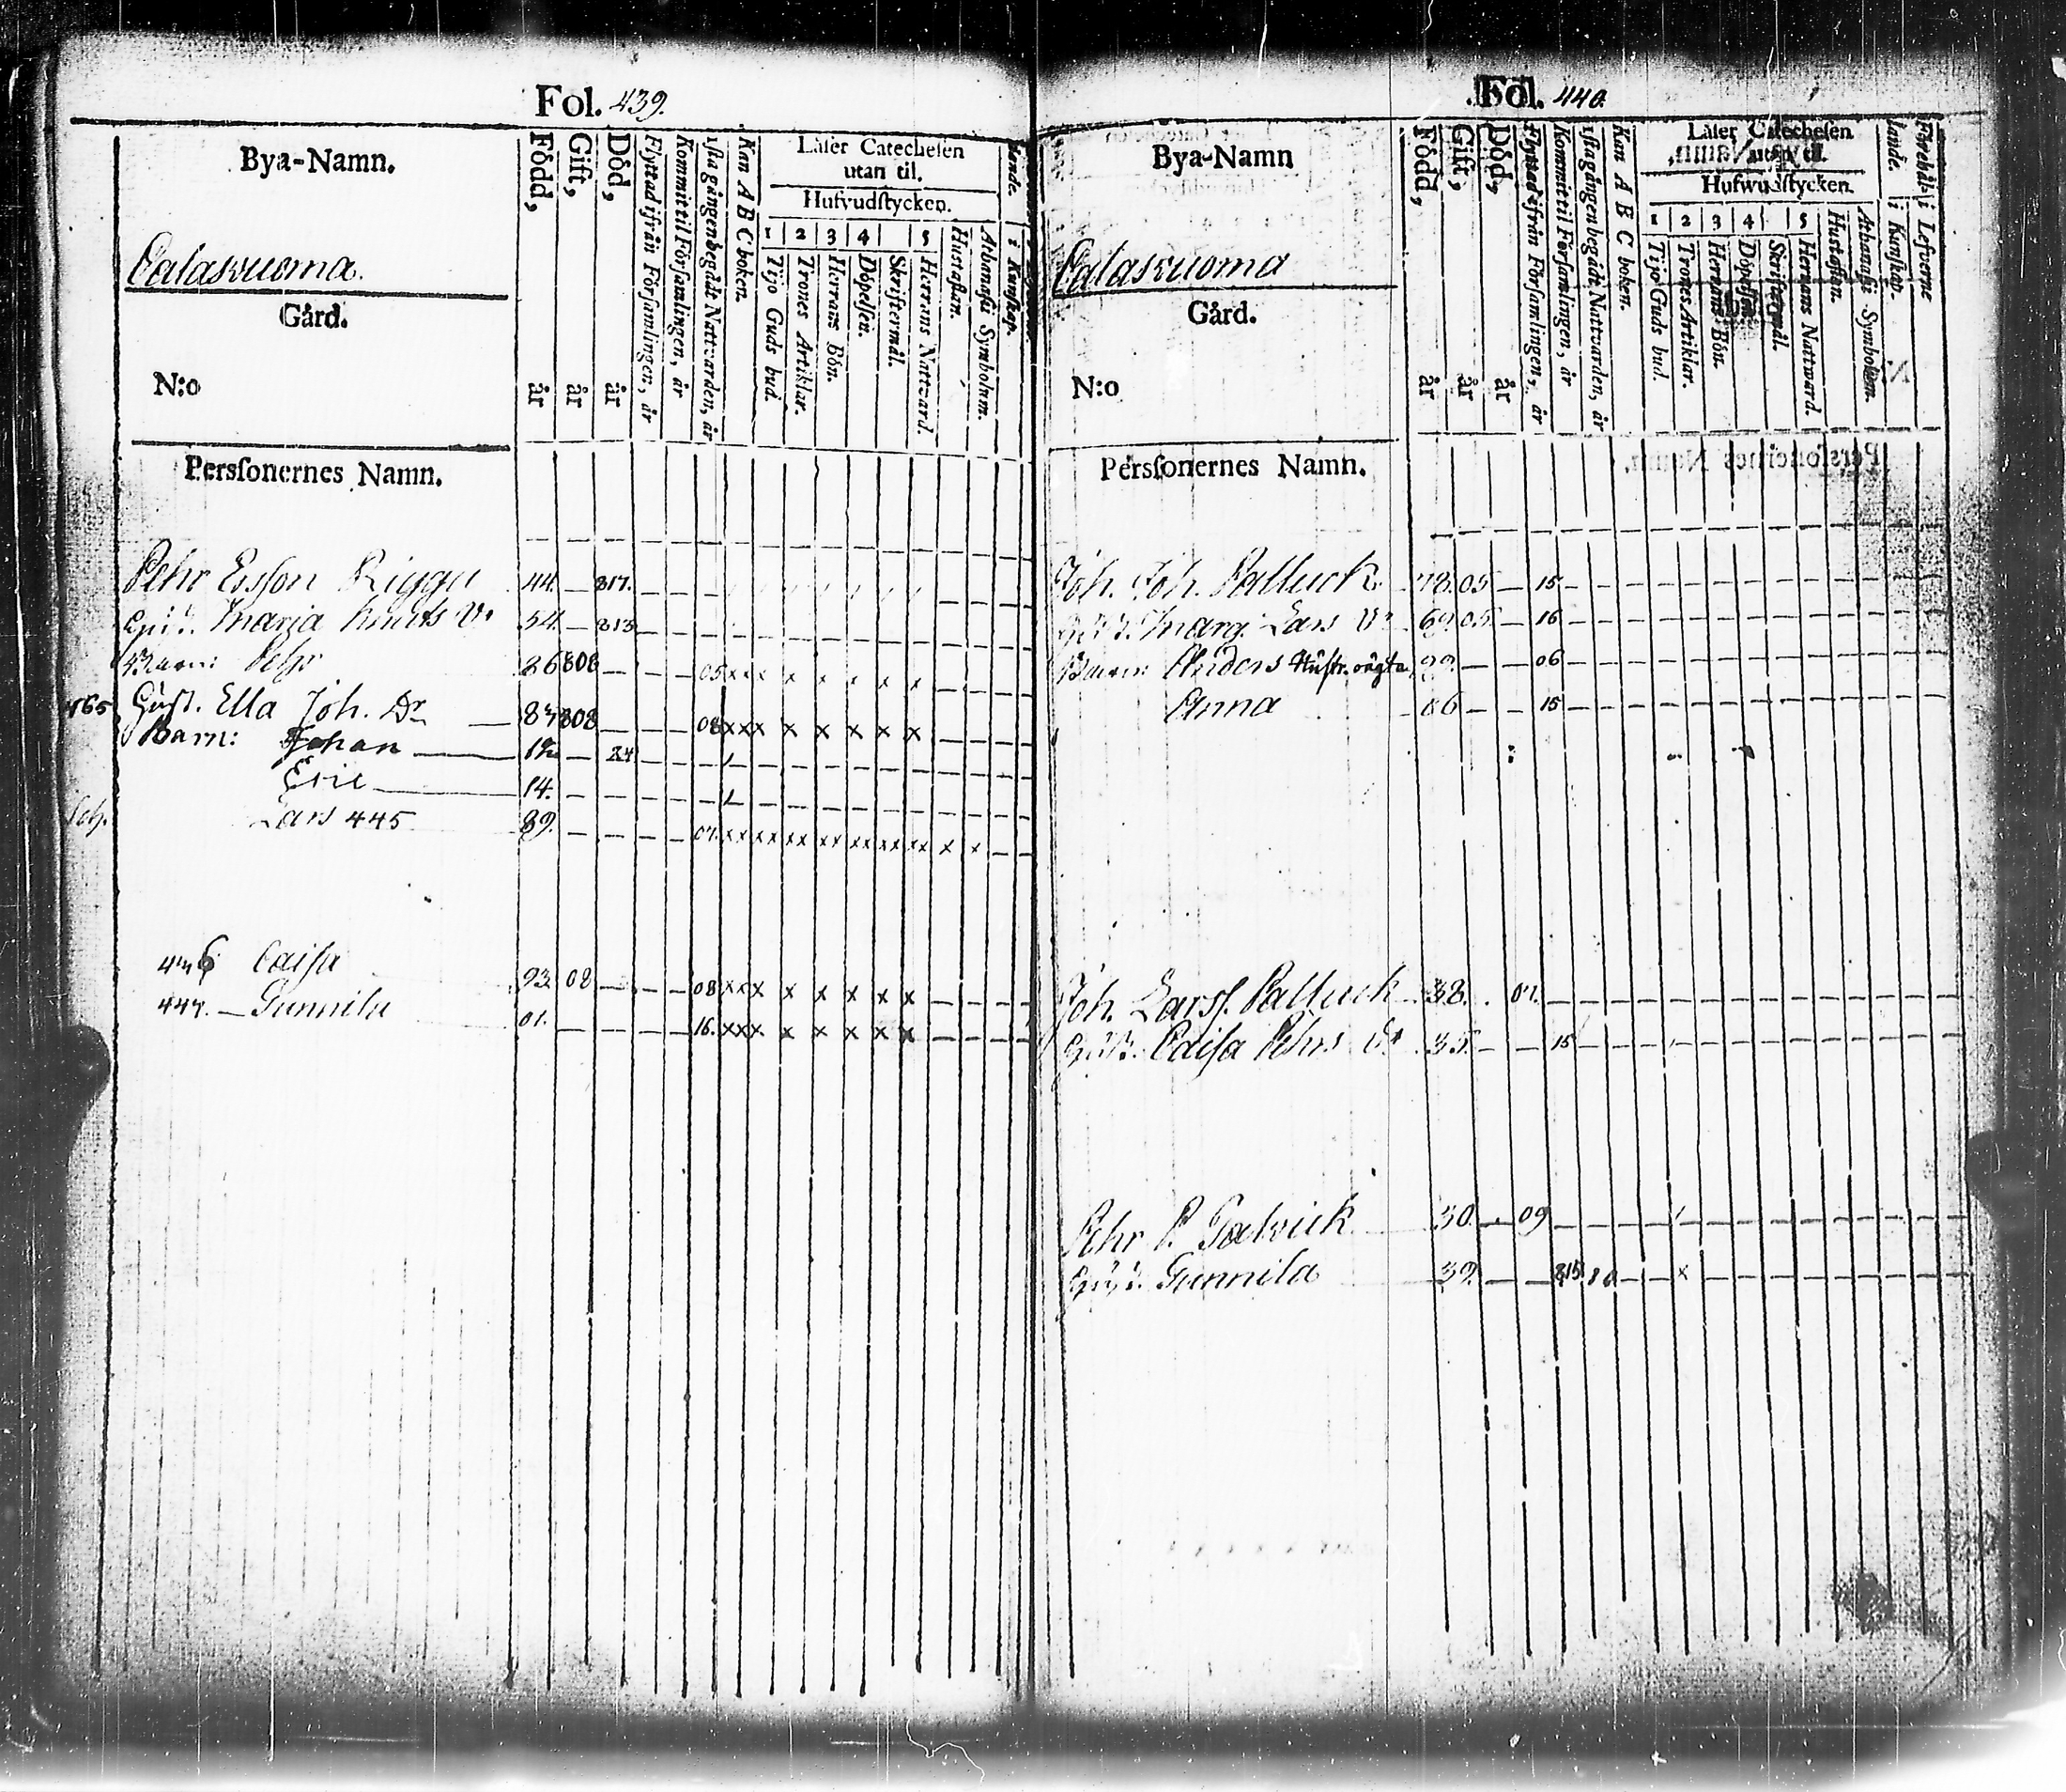 Fol. 439.
Bya-Namn.
Född, år
Gift, år
Död, år
Flyttad ifrån Församlingen, år
Kommit til Församlingen, år
1sta gången begådt Nattvarden, år
Kan A B C boken.
Läser Catechesen
utan til.
Hufvudstycken.
1 2 3 4 5
Tijo Guds bud.
Trones Artiklar.
Herrans Bön.
Döpelsen.
Skriftermål.
Herrans Nattvard.
Hustaflan.
Athanasii Symbolum.
Calasvuoma.
Gård.
N:o
Persſonernes Namn.
Pehr Erſson Riggu 44. — 817.
Maria Knuts 54. — 813
Barn: Pehr 86 808 — — — 05 x x x x x x x x
465 Hust. Ella Joh. Dr 83 808 — — — 08 x x x x x x x x
Barn: Johan 12 — 24
Eric 14.
Lars 445 89. — — — — 07. x x x x x x x x x x x x x x x x x x x x
446 Caiſa 93 08 — — — 08 x x x x x x x x
447. — Gunnila 01. — — — — 16. x x x x x x x x
Fol. 440.
Bya-Namn
Född, år
Gift, år
Död, år
Flyttad ifrån Församlingen, år
Kommit til Församlingen, år
1sta gången begådt Nattvarden, år
Kan A B C boken.
Läser Catechesen
utan til.
Hufwudstycken.
1 2 3 4 5
Tijo Guds bud.
Trones Artiklar.
Herrans Bön.
Döpelsen.
Skriftermål.
Herrans Nattward.
Hustaflan.
Athanasii Symbolum.
i Kunskap.
i Lefverne
Calasvuoma
Gård.
N:o
Persſonernes Namn.
Joh. Joh. Palluck 78. 05 — 15
Marg. Lars 69. 05 — 16
Barn: Anders 99. — — 06
Anna 06 — — 15
Joh. Larsſ. Palluck 38. . 07.
Caiſa Pehrs 35. — — 15
Pehr P. 30. — 09
Gunnila 39. — — 815 x